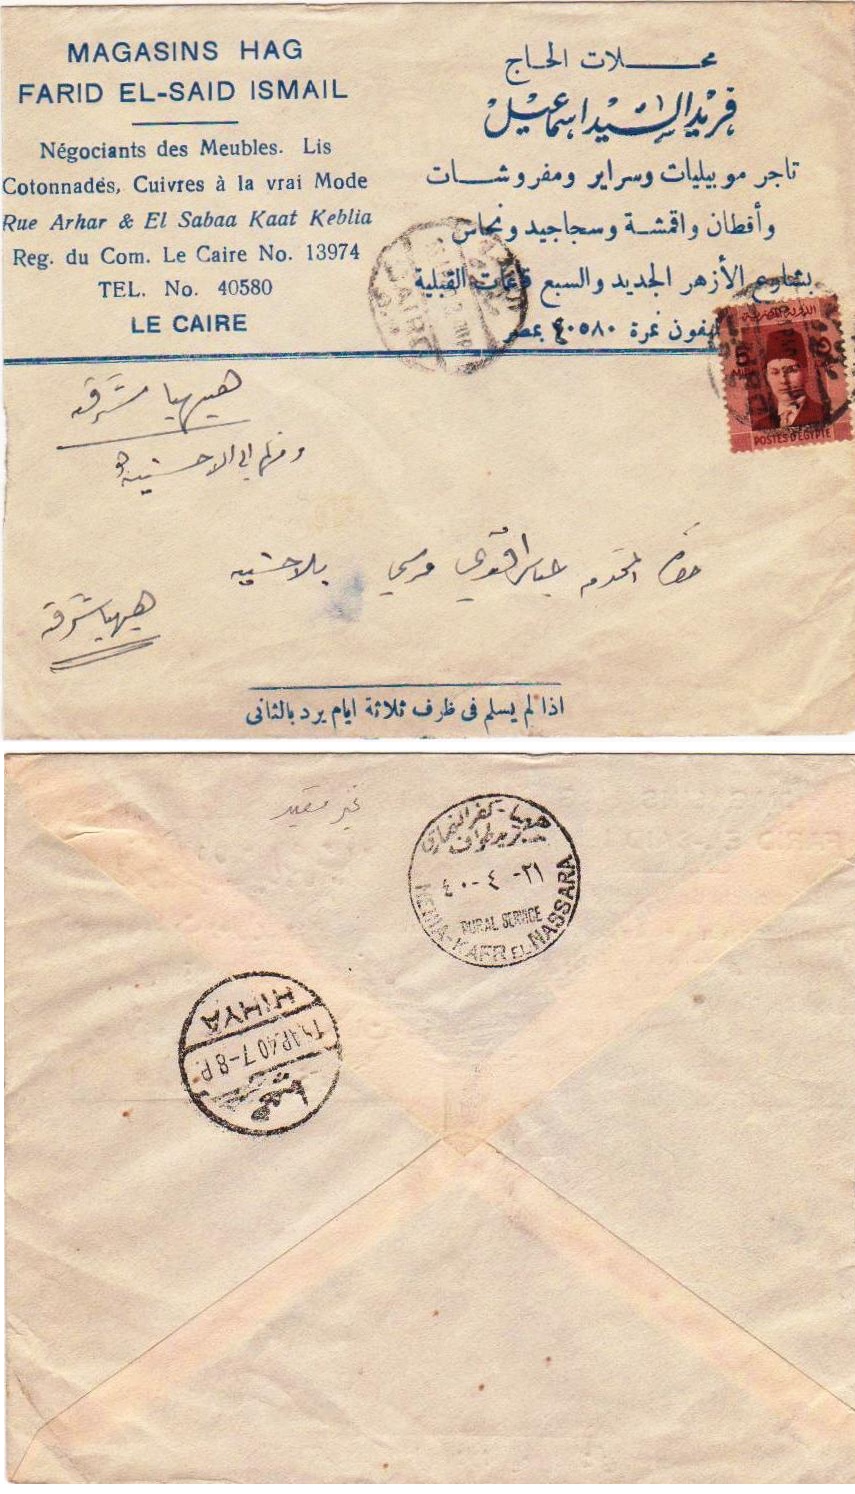 MAGASINS HAG
FARID EL-SAID ISMAIL
Négociants des Meubles. Lis
Cotonnades, Cuivres à la vrai Mode
Rue Arhar & El Sabaa Kaat Keblia
Reg. du Com. Le Caire No. 13974
TEL. No. 40580
LE CAIRE
محلات الحاج
فريد السيد اسماعيل
تاجر موبيليات وسراير ومفروشات
وأقطان واقمشة وسجاجيد ونحاس
بشارع الأزهر الجديد والسبع قاعات القبلية
تليفون نمرة ٤٠٥٨٠ بمصر
CAIRO
POSTES D'EGYPTE
ههيا شرقيه
ومنها الى الاحشيه
حضرة المحترم عباس افندى مرسي بلاحشيه
ههيا شرقيه
اذا لم يسلم فى ظرف ثلاثة ايام يرد بالثانى
غير مقيد
ههيا - كفر النصارى
٢١-٤-٤٠
RURAL SERVICE
HEHIA-KAFR EL NASSARA
HIHYA
AP.40.7-8 P
ههيا